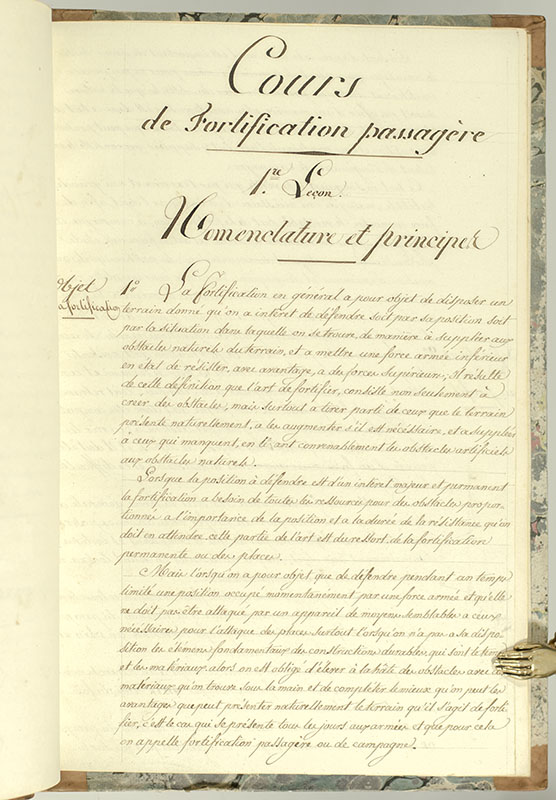 Cours
de Fortification passagère
1.re Leçon.
Nomenclature et principes
Objet
la fortification
1º La Fortification en général a pour objet de disposer un
terrain donné qu'on a intéret de défendre soit par sa position soit
par la situation dans laquelle on se trouve, de manière à suppléer aux
obstacles naturels du terrain, et a mettre une force armée inférieur
en etat de résister, avec avantage, a des forces supérieures, il résulte
de cette définition que l'art de fortifier, consiste non seulement à
créer des obstacles, mais surtout a tirer parti de ceux que le terrain
présente naturellement, a les augmenter s'il est nécéssaire, et a suppléer
à ceux qui manquent, en liant convenablement les obstacles artificiels
aux obstacles naturels.
Lorsque la position à défendre est d'un intéret majeur et permanent
la fortification a besoin de toutes les ressources pour des obstacles propor-
tionnés a l'importance de la position et a la durée de la résistance qu'on
doit en attendre. cette partie de l'art est du ressort de la fortification
permanente ou des places.
Mais lorsqu'on a pour objet que de défendre pendant un temps
limité une position occupé momentanément par une force armée et qu'elle
ne doit pas être attaqué par un appareil de moyens semblables a ceux
nécéssaires pour l'attaque des places surtout lorsqu'on n'a pas a sa dispo-
sition les élémens fondamentaux des constructions durables qui sont le tems
et les matériaux, alors on est obligé d'élever à la hâte des obstacles avec les
matériaux qu'on trouve sous la main et de compléter le mieux qu'on peut les
avantages que peut présenter naturellement le terrain qu'il s'agit de forti-
fier, c'est le cas qui se présente tous les jours aux armées et que pour cela
on appelle fortification passagère ou de campagne.